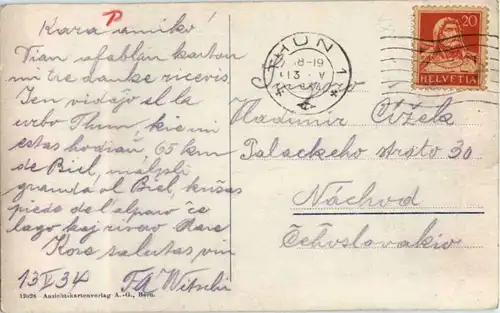 P
Kara amiko!
Vian afablan karton
mi tre danke ricevis.
Jen vidaĵo el la
urbo Thun, kie mi
estas hodiaŭ 65 km
de Biel, malpli
granda ol Biel, kuŝas
piede de l'alparo ĉe
lago kaj rivero Aare
Kore salutas vin
13 V 34
12928 Ansichtskartenverlag A.-G., Bern.
THUN 1
20
HELVETIA
Vladimir Čížek
Palackeho 30
Náchod
Ĉeĥoslovakio